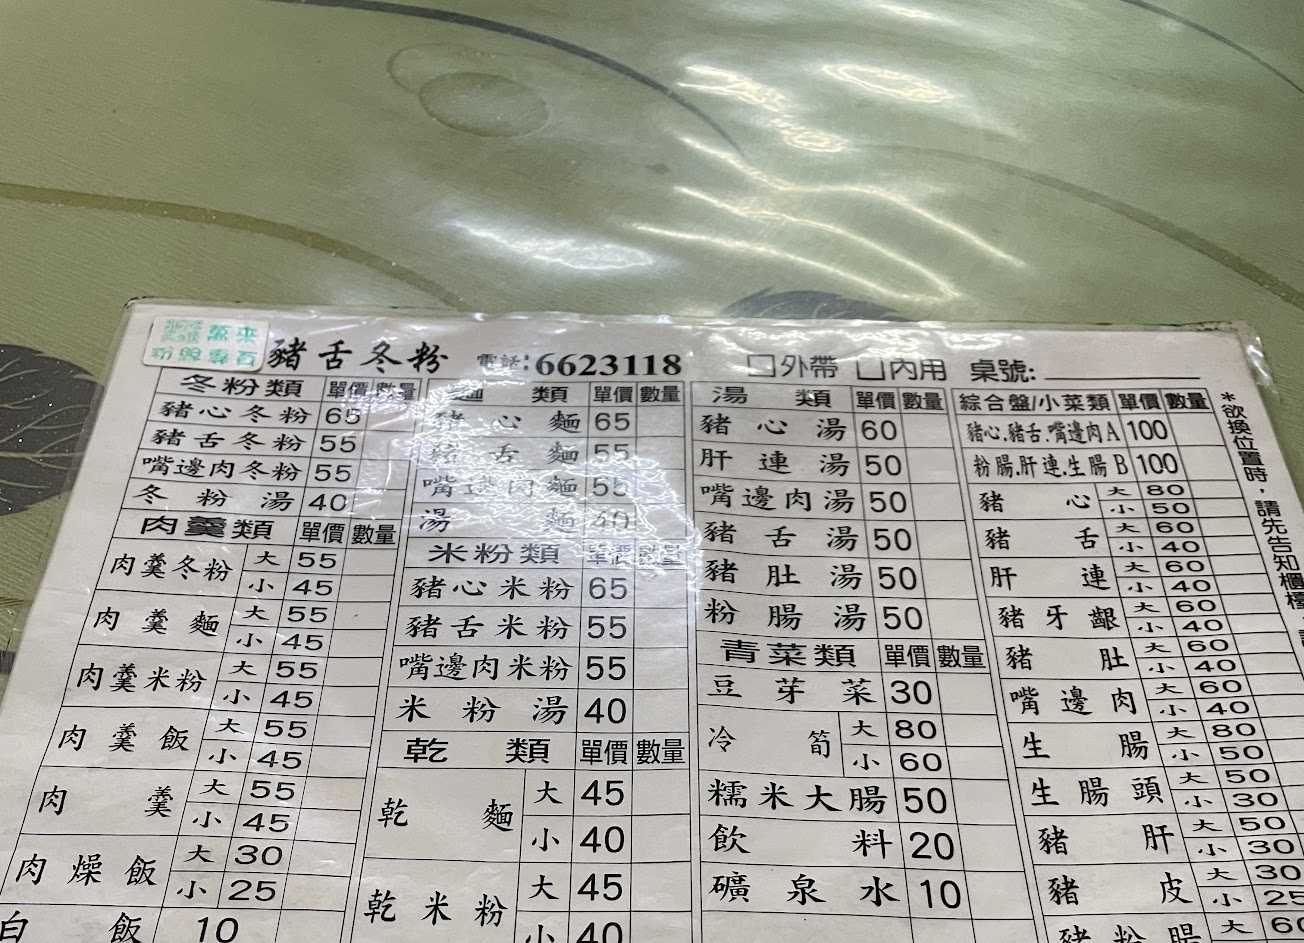 萬來
粉絲專頁
豬舌冬粉 電話:6623118 □外帶 □內用 桌號:
冬粉類 單價 數量
豬心冬粉 65
豬舌冬粉 55
嘴邊肉冬粉 55
冬粉湯 40
肉羹類 單價 數量
肉羹冬粉 大 55
小 45
肉羹麵 大 55
小 45
肉羹米粉 大 55
小 45
肉羹飯 大 55
小 45
肉羹 大 55
小 45
肉燥飯 大 30
小 25
白飯 10
麵類 單價 數量
豬心麵 65
豬舌麵 55
嘴邊肉麵 55
湯麵 40
米粉類 單價 數量
豬心米粉 65
豬舌米粉 55
嘴邊肉米粉 55
米粉湯 40
乾類 單價 數量
乾麵 大 45
小 40
乾米粉 大 45
小 40
湯類 單價 數量
豬心湯 60
肝連湯 50
嘴邊肉湯 50
豬舌湯 50
豬肚湯 50
粉腸湯 50
青菜類 單價 數量
豆芽菜 30
冷筍 大 80
小 60
糯米大腸 50
飲料 20
礦泉水 10
綜合盤/小菜類 單價 數量
豬心.豬舌.嘴邊肉A 100
粉腸.肝連.生腸B 100
豬心 大 80
小 50
豬舌 大 60
小 40
肝連 大 60
小 40
豬牙齦 大 60
小 40
豬肚 大 60
小 40
嘴邊肉 大 60
小 40
生腸 大 80
小 50
生腸頭 大 50
小 30
豬肝 大 50
小 30
豬皮 大 30
小 25
豬粉腸 大 60
*欲換位置時，請先告知櫃檯